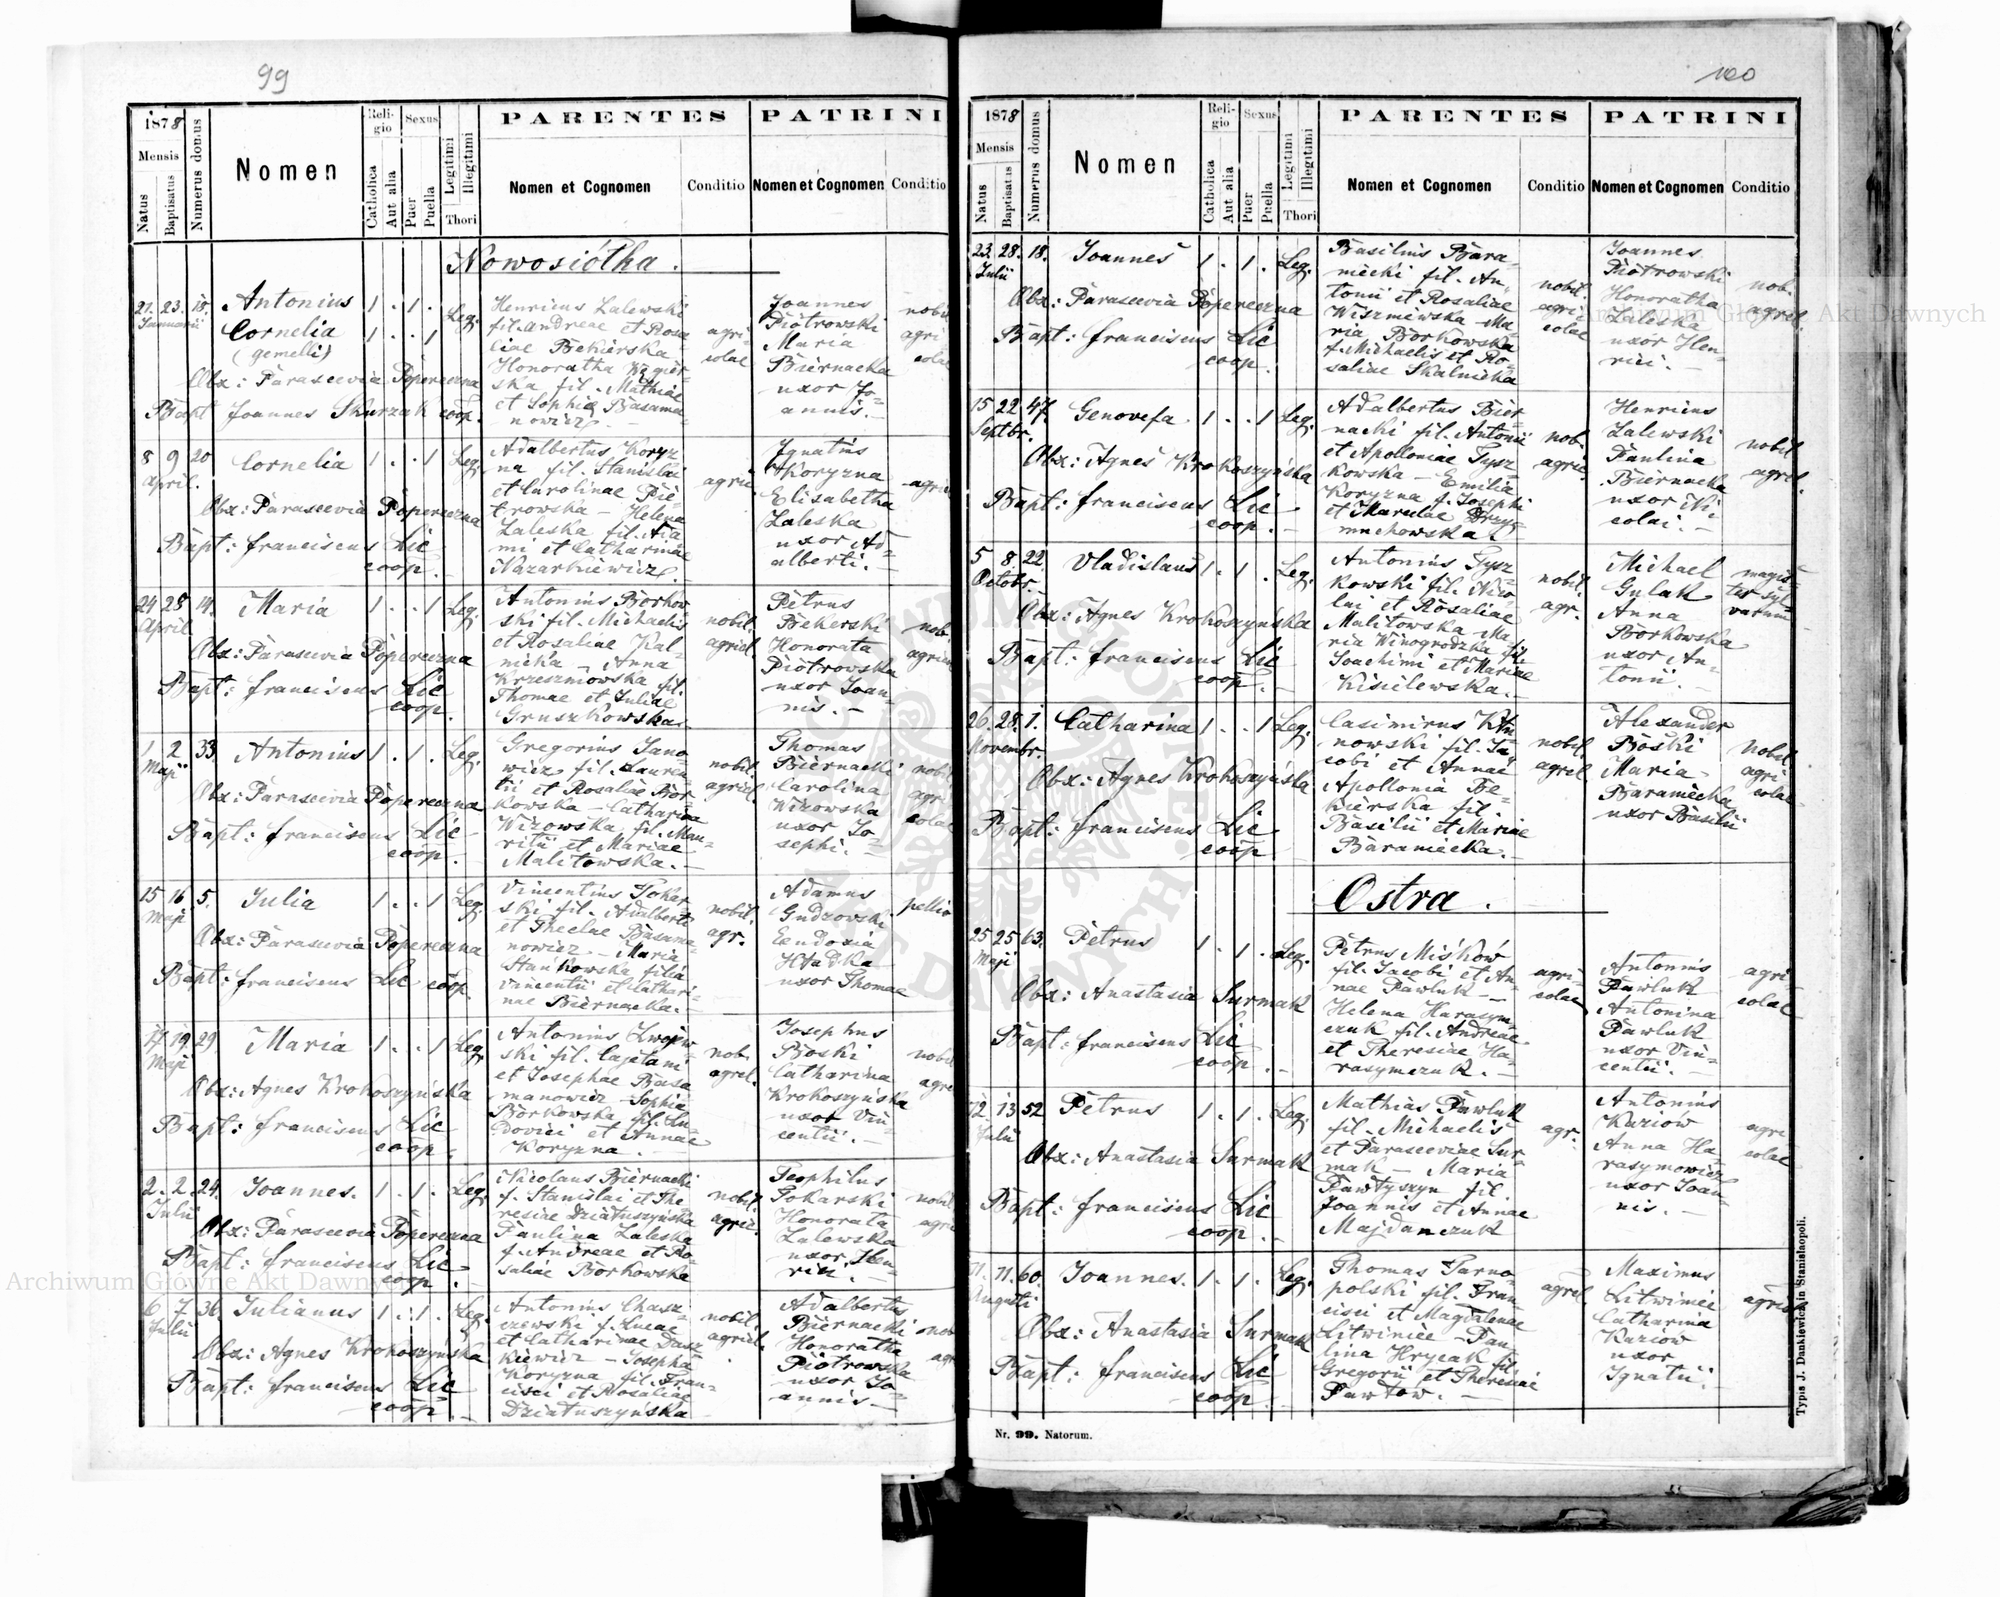 99
1878
Mensis
Natus
Baptisatus
Numerus domus
Nomen
Religio
Catholica
Aut alia
Sexus
Puer
Puella
Legitimi
Illegitimi
Thori
PARENTES
Nomen et Cognomen
Conditio
PATRINI
Nomen et Cognomen
Conditio
Nowosiółka.
21. 23. Januarii
Antonius 1 . 1 . Leg.
Cornelia 1 . . 1
(gemelli)
Obx: Parascevia Popereczna
Bapt Joannes Skurzak coop.
Henricus Zalewski
fil. Andreae et Rosa
liae Bekierska
Honoratha
ska fil. Mathiae
et Sophiae Basama-
nowicz.
agri-
colae
Joannes
Piotrowski
Maria
Biernacka
uxor Jo-
annis.
nobil
agri
colae
8 9 20 April.
Cornelia 1 . . 1 Leg.
Obx: Parascevia Popereczna
Bapt: Franciscus Lic
coop.
Adalbertus Koryz-
na fil. Stanislai
et Carolinae Pie-
trowska - Helena
Zaleska fil. Ada-
mi et Catharinae
Nazarkiewicz.
agric.
Ignatius
Koryzna
Elisabetha
Zaleska
uxor Ad-
alberti.
agric
24 28 14. April
Maria 1 . . 1 Leg.
Obx: Parascevia Popereczna
Bapt: Franciscus Lic
coop.
Antonius Borkow
ski fil. Michaelis
et Rosaliae Kal-
nicka - Anna
Krzeszmowska fil.
Thomae et Juliae
Gruszkowska.
nobil.
agricol.
Petrus
Bekerski
Honorata
Piotrowska
uxor Joan-
nis.
nob.
agricol
1 2 33. Maji
Antonius 1 . 1 . Leg.
Obx: Parascevia Popereczna
Bapt: Franciscus Lic
coop.
Gregorius Jano-
wicz fil. Lauren-
tii et Rosaliae Bor-
kowska - Catharina
Wizowska fil. Mau-
ritii et Mariae
Malitowska.
nobil.
agricol.
Thomas
Biernacki
Carolina
Wizowska
uxor Jo-
sephi.
nobil
agri
colae
15 16 5. Maji
Julia 1 . . 1 Leg.
Obx: Parascevia Popereczna
Bapt: Franciscus Lic coop.
Vincentius Tokar-
ski fil. Adalberti
et Theclae Basama-
nowicz - Maria
Stańkowska filia
Vincentii et Cathari-
nae Biernacka.
nobil.
agr.
Adamus
Gudzovski
Eudoxia
Hładka
uxor Thomae
pellio
17. 19. 29. Maji
Maria 1 . . 1 Leg.
Obx: Agnes Krokoszyńska
Bapt: Franciscus Lic
coop.
Antonius
ski fil. Cajetani
et Josephae Basa
manowicz - Sophia
Borkowska fil. Lu-
dovici et Annae
Koryzna.
nob.
agrcl.
Josephus
Boski
Catharina
Krokoszyńska
uxor Vin-
centii.
nobil
agrc
2. 2. 24. Julii
Joannes. 1 . 1 . Leg.
Obx: Parascevia Popereczna
Bapt: Franciscus Lic
coop.
Nicolaus Biernacki
f. Stanislai et The
resiae Dziatuszyńska
Paulina Zaleska
f. Andreae et Ro
saliae Borkowska
nobil.
agric.
Teophilus
Tokarski
Honorata
Zalewska
uxor Hen-
rici.
nobil
agric
6 7 36. Julii
Julianus 1 . 1 . Leg.
Obx: Agnes Krokoszyńska
Bapt: Franciscus Lic
coop.
Antonius Chasz-
czewski f. Lucae
et Catharinae Dasz
kiewicz - Josepha
Koryzna fil. Fran-
cisci et Rosaliae
Dziatuszyńska
nobil.
agricol.
Adalbertus
Biernacki
Honoratha
Piotrowska
uxor Jo-
annis.
nob
agr
100
1878
Mensis
Natus
Baptisatus
Numerus domus
Nomen
Religio
Catholica
Aut alia
Sexus
Puer
Puella
Legitimi
Illegitimi
Thori
PARENTES
Nomen et Cognomen
Conditio
PATRINI
Nomen et Cognomen
Conditio
23. 28. 18. Julii
Joannes 1 . 1 . Leg.
Obx: Parascevia Popereczna
Bapt: Franciscus Lic
coop.
Basilius Bara-
niecki fil. An-
tonii et Rosaliae
Wiszniewska - Ma-
ria Borkowska
f. Michaelis et Ro-
saliae Skalnicka
nobil.
agri-
colae
Joannes
Piotrowski
Honoratha
Zaleska
uxor Hen-
rici.
nob.
agricl.
15 22 47. Septbr.
Genovefa. 1 . . 1 Leg.
Obx: Agnes Krokoszyńska
Bapt: Franciscus Lic
coop.
Adalbertus Bier
nacki fil. Antonii
et Apolloniae Tysz
kowska - Emilia
Koryzna f. Josephi
et Marulae Drzy-
muchowska.
nob.
agric.
Henricus
Zalewski
Paulina
Biernacka
uxor Ni-
colai.
nobil
agrcl.
5 8. 22. Octobr.
Vladislaus 1 . 1 . Leg.
Obx: Agnes Krokoszyńska
Bapt: Franciscus Lic
coop.
Antonius Tysz-
kowski fil. Nico-
lai et Rosaliae
Malitowska - Ma-
ria Winogrodzka fil.
Joachimi et Mariae
Kisielewska.
nobil.
agr.
Michael
Gulak
Anna
Borkowska
uxor An-
tonii.
magis-
ter
26. 28. 1. Novembr.
Catharina 1 . . 1 Leg.
Obx: Agnes Krokoszyńska
Bapt: Franciscus Lic
coop
Casimirus
nowski fil. Ja-
cobi et Annae
Apollonia Be-
kierska fil.
Basilii et Mariae
Baraniecka.
nobil
agrcl
Alexander
Boski
Maria
Baraniecka
uxor Basilii
nobil
agri
colae
Ostra.
25 25 63. Maji
Petrus 1 . 1 . Leg.
Obx: Anastasia Surmak
Bapt: Franciscus Lic
coop.
Petrus Miśków
fil. Jacobi et An-
nae Pawluk -
Helena Harasym-
czuk fil. Andreae
et Theresiae Ha-
rasymczuk.
agri-
colae
Antonius
Pawluk
Antonina
Pawluk
uxor Vin-
centii.
agri-
colae
12 13 52 Julii
Petrus 1 . 1 . Leg.
Obx: Anastasia Surmak
Bapt: Franciscus Lic
coop.
Mathias Pawluk
fil. Michaelis
et Parasceviae Sur-
mak - Maria
Pawłyszyn fil.
Joannis et Annae
Majdanczuk
agr.
Antonius
Kuziów
Anna Ha-
rasymowicz
uxor Joan-
nis.
agri-
colae
11. 60. Augusti
Joannes. 1 . 1 . Leg.
Obx: Anastasia Surmak
Bapt: Franciscus Lic
coop.
Thomas Tarno-
polski fil. Fran-
cisci et Magdalenae
Litwiniec - Pau-
lina Hrycak fil.
Gregorii et Theresiae
Pawłow.
agrcl.
Maximus
Litwiniec
Catharina
Kuziow
uxor
Ignatii.
agric
Nr. 99. Natorum.
Typis J. Dankiewicz, in Stanislaopoli.
Archiwum Główne Akt Dawnych
Archiwum Główne Akt Dawnych
ARCHIWUM GŁÓWNE AKT DAWNYCH